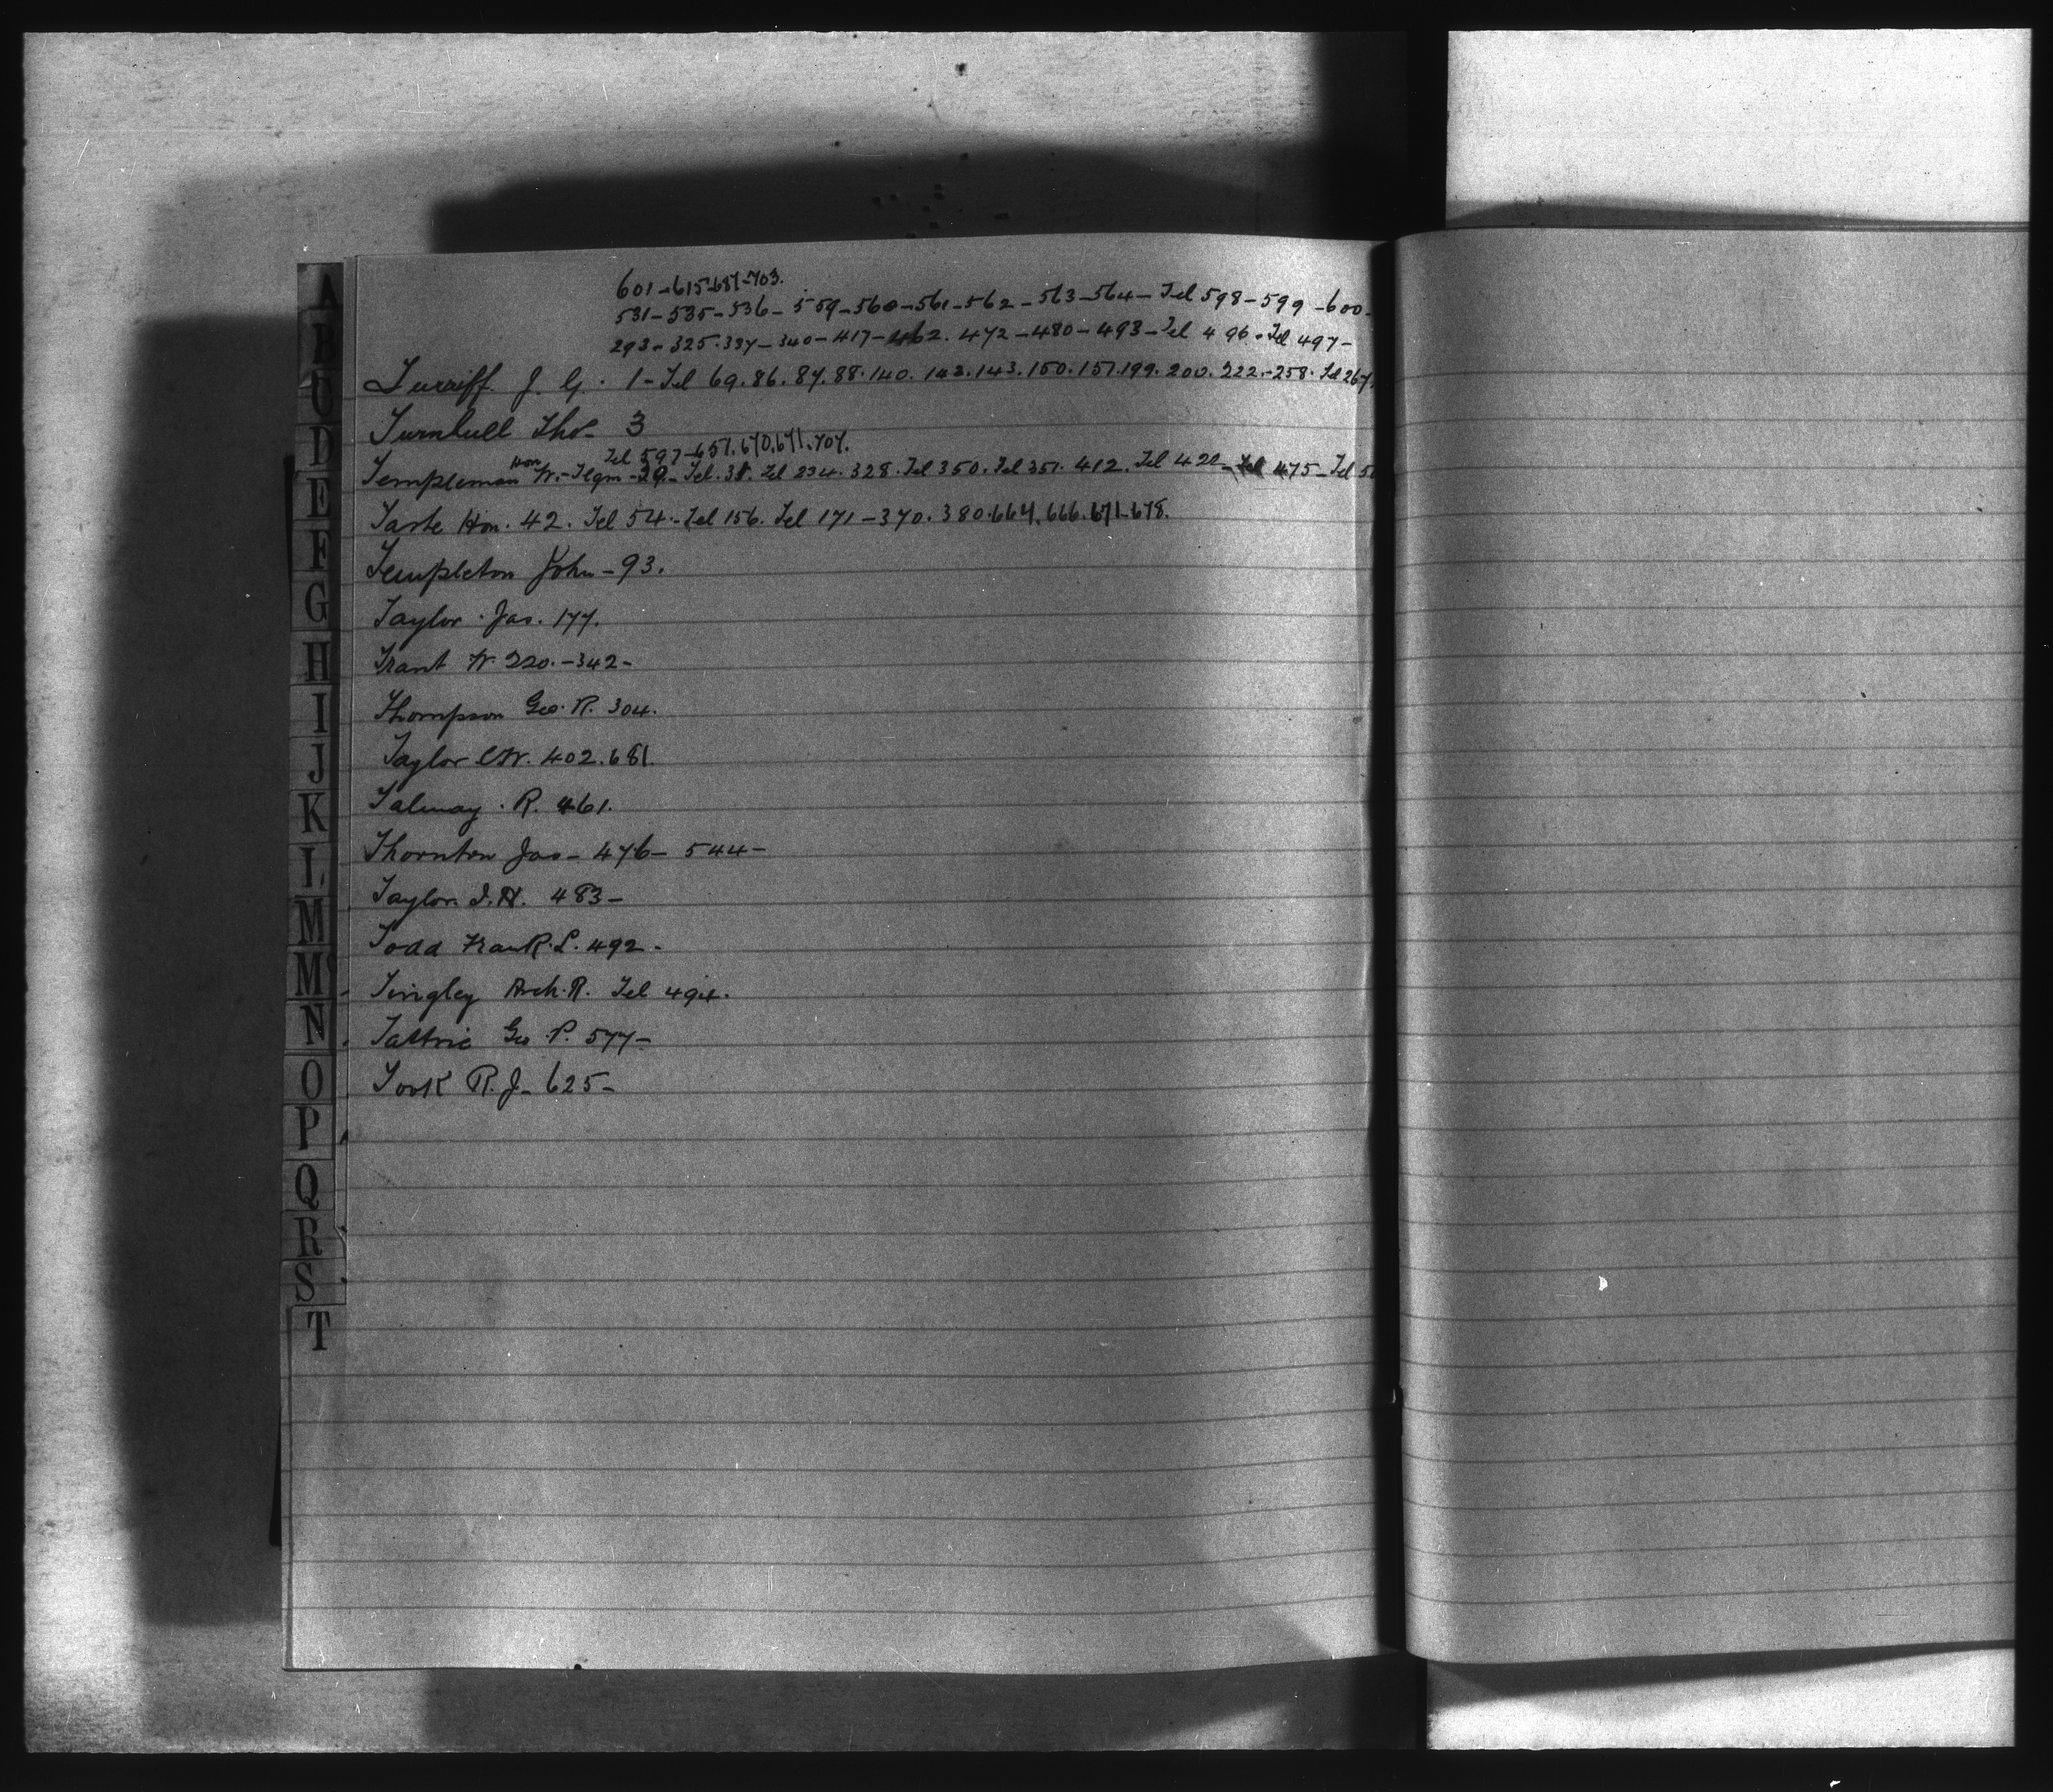 601-615-687-703.
531-535-536-559-560-561-562-563-564-Tel 598-599-600-
293-325.337-340-417-462.472-480-493-Tel 496-Tel 497-
Turriff J. G. 1-Tel 69.86.87.88.140.142.143.150.157.199.200.222.-258. Tel 267
Turnbull Thos- 3
Tel 597-657.670.671.707.
Templeman Hon W.-Tlgm-29-Tel.31. Tel 234.328.Tel 350.Tel 351.412.Tel 422- Tel 475-Tel
Tarte Hon. 42. Tel 54.-Tel 156. Tel 171-370.380.664.666.671-678.
Templeton John-93.
Taylor Jas. 177.
Trant W. 220.-342-
Thompson Geo. R. 304.
Taylor C.W. 402.681.
Talmay. R. 461.
Thornton Jas- 476- 544-
Taylor. I.H. 483-
Todd Frank. L. 492-
Tingley Arch. R. Tel 494.
Tattrie Geo. P. 577-
Took R.J- 625-
A
B
C
D
E
F
G
H
I
J
K
L
M
M
N
O
P
Q
R
S
T